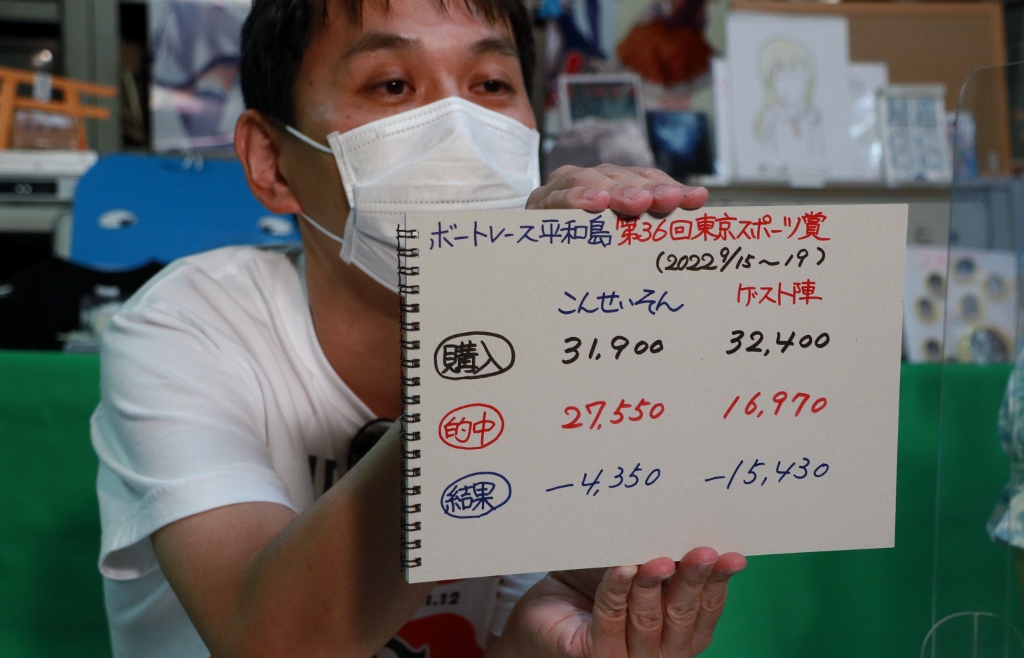 ボートレース平和島 第36回東京スポーツ賞
(2022 9/15〜19)
こんせいそん ゲスト陣
購入 31,900 32,400
的中 27,550 16,970
結果 -4,350 -15,430
1.12